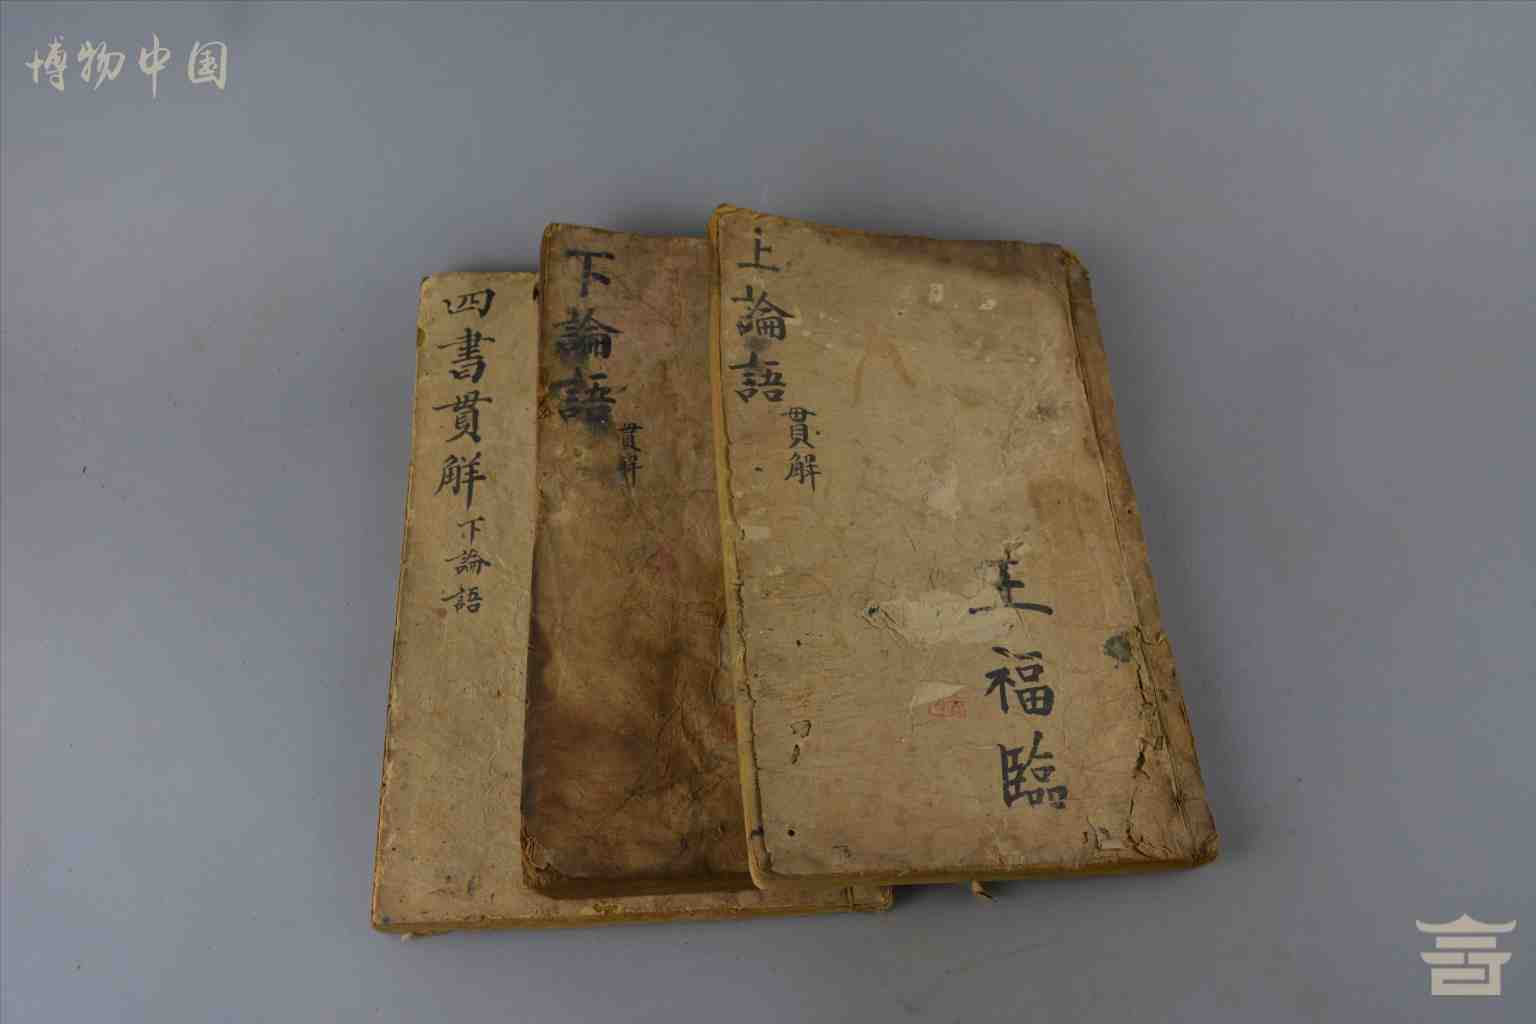 博物中国
四書貫解下論語
下論語
貫解
上論語
貫解
王福臨